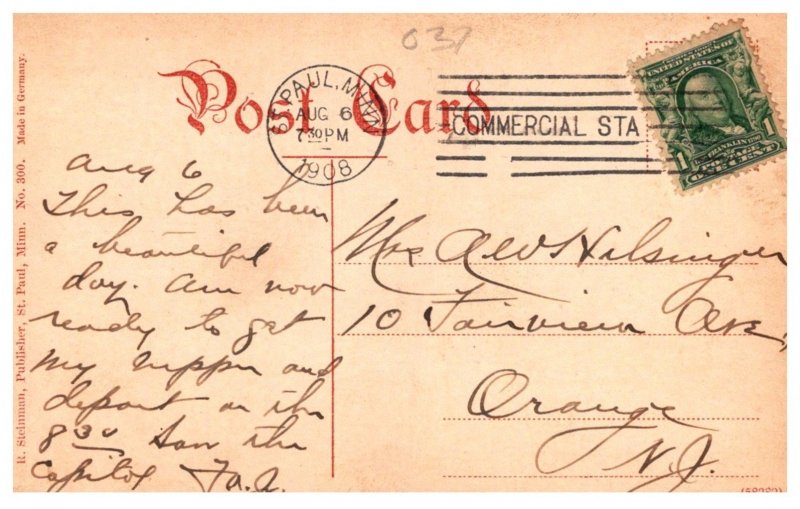 037
Post Card
ST. PAUL, MINN.
AUG 6
7 30 PM
1908
COMMERCIAL STA
UNITED STATES OF AMERICA
FRANKLIN
1 1
ONE CENT
Aug 6
This has been
a beautiful
day. Am now
ready to get
my supper and
depart on the
8 30 the
Capitol
Mrs A W Hilsinger
10 Fairview Ave,
Orange
N.J.
R. Steinman, Publisher, St. Paul, Minn. No. 300. Made in Germany.